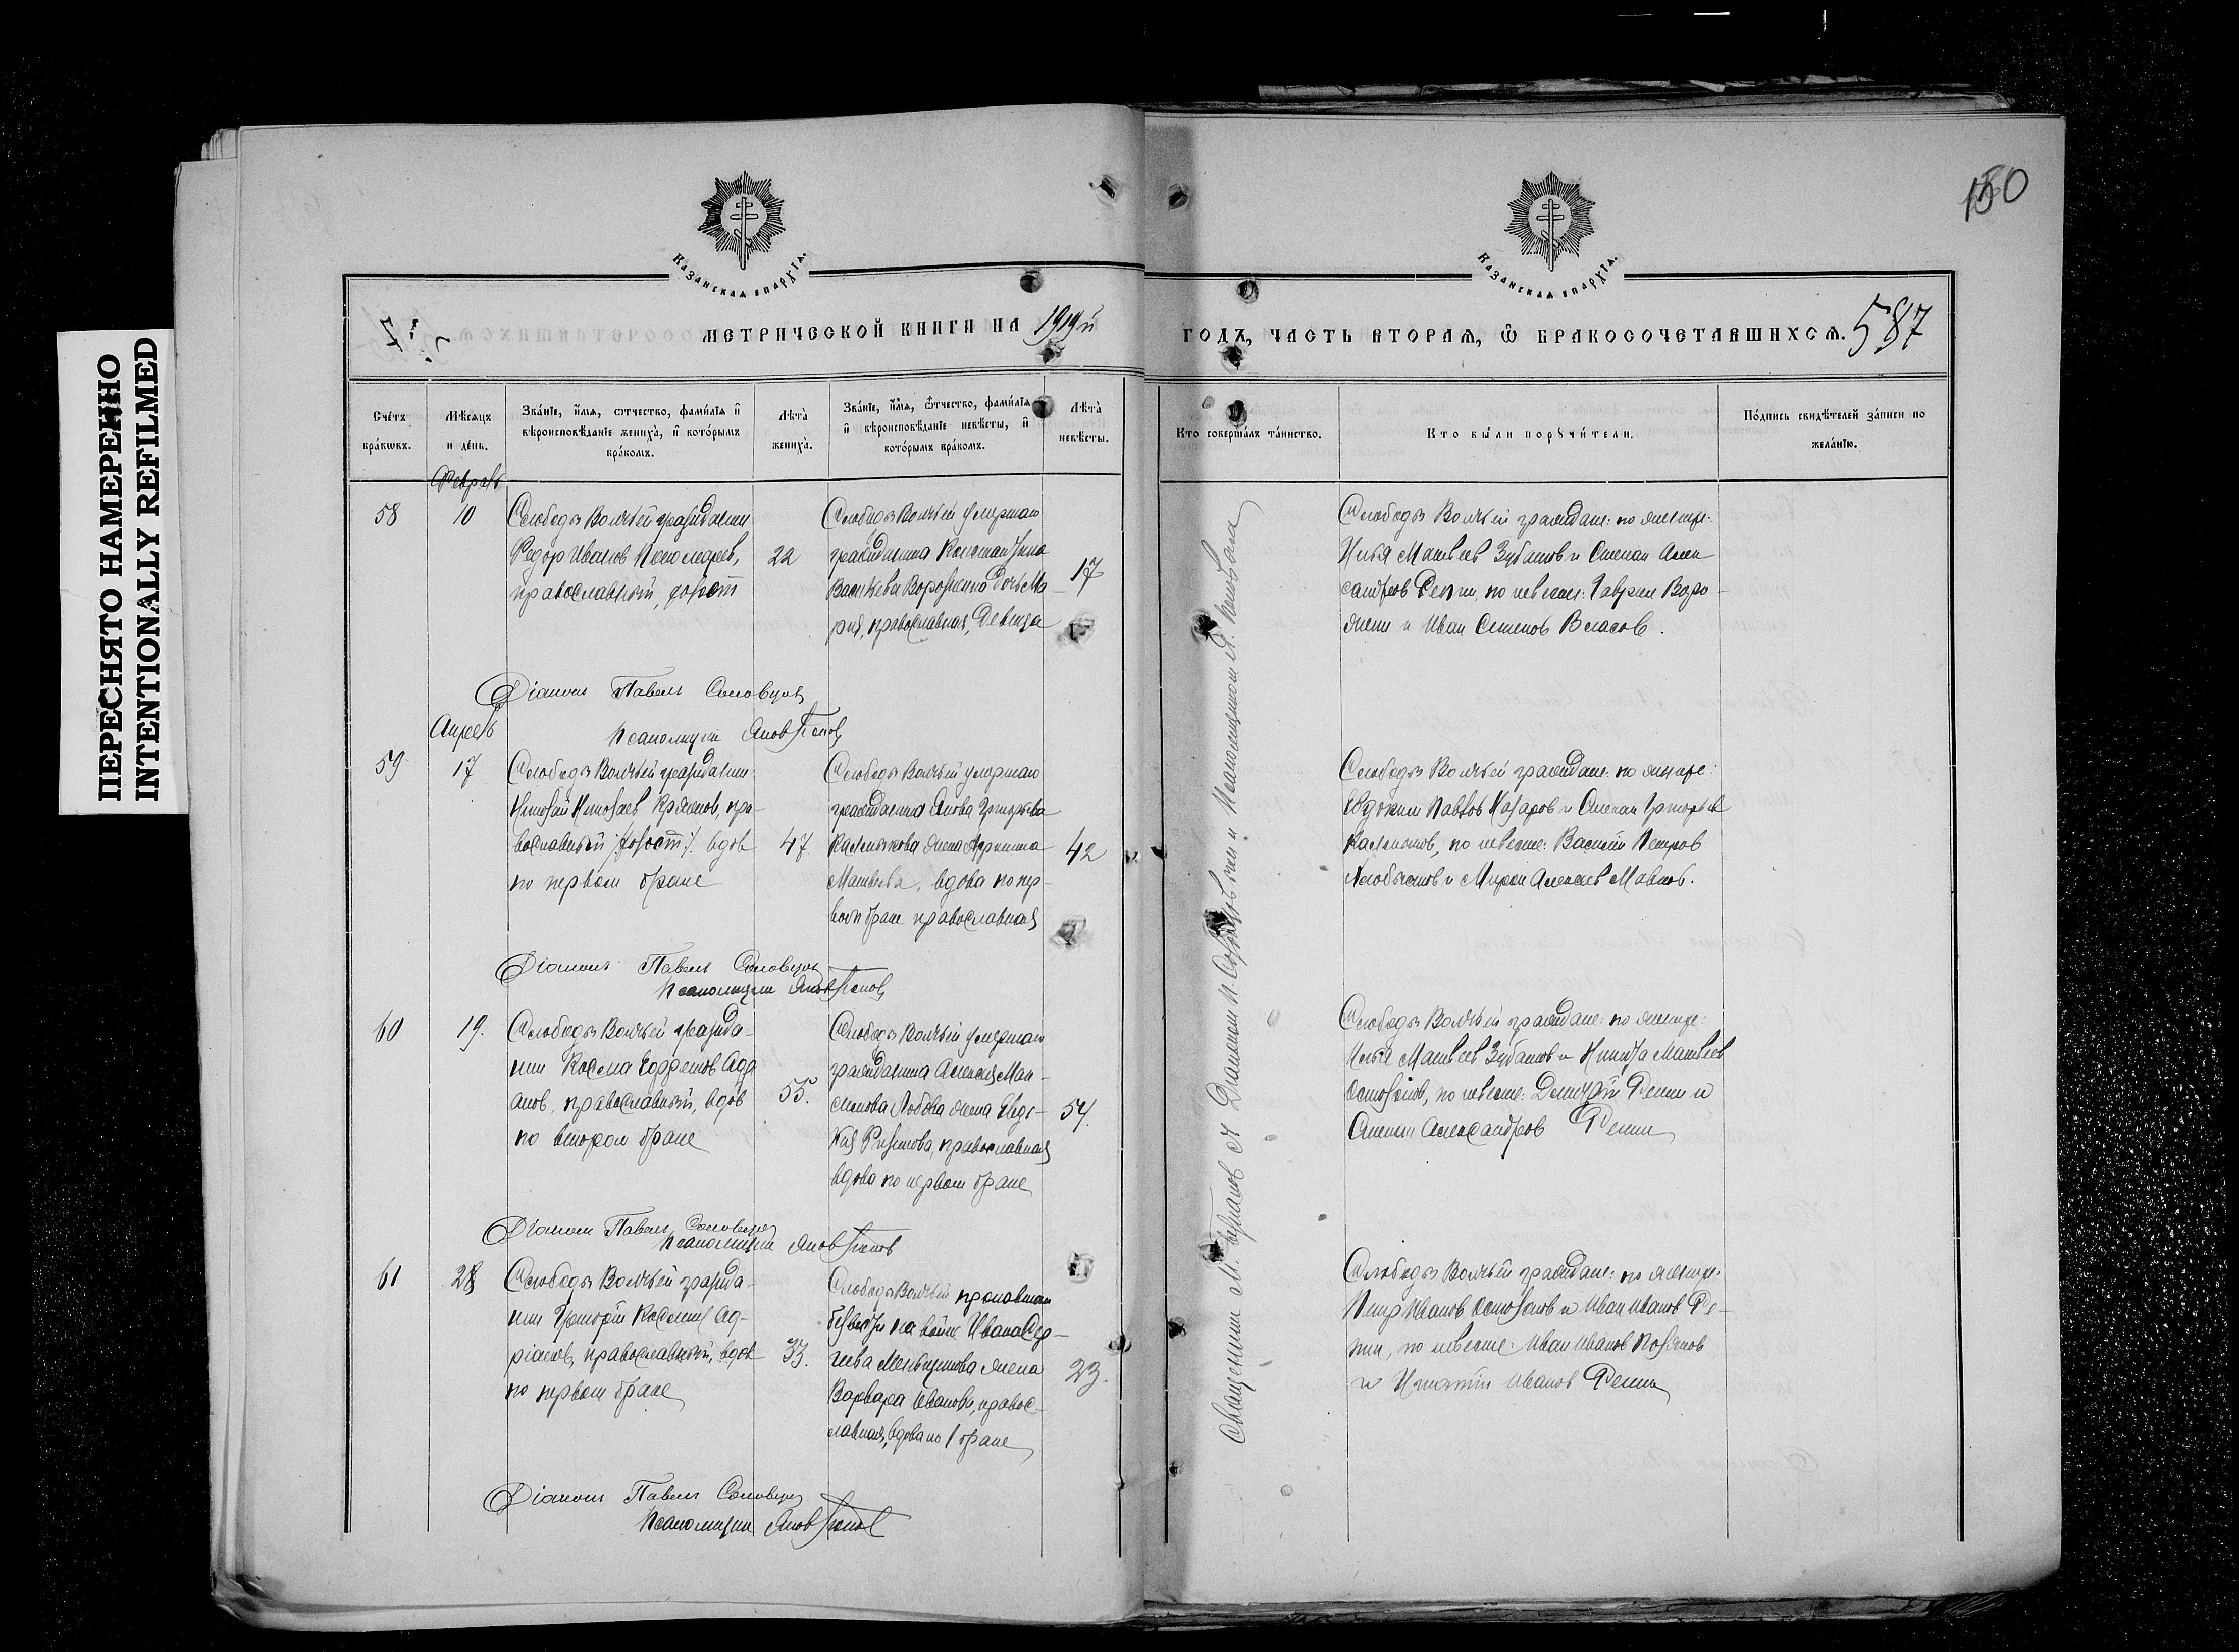 ПЕРЕСНЯТО НАМЕРЕННО
INTENTIONALLY REFILMED
150
КАЗАНСКАѦ ЕПАРХІѦ.
КАЗАНСКАѦ ЕПАРХІѦ.
МЕТРИЧЕСКОЙ КНИГИ НА 1919й
ГОДЪ, ЧАСТЬ ВТОРАѦ, Ѿ БРАКОСОЧЕТАВШИХСѦ. 587
Счетъ бракѡвъ.
Мѣсяцъ и день.
Званіе, имя, отчество, фамилія и вѣроисповѣданіе жениха, и которымъ бракомъ.
Лѣта жениха.
Званіе, имя, отчество, фамилія и вѣроисповѣданіе невѣсты, и которымъ бракомъ.
Лѣта невѣсты.
Кто совершалъ таинство.
Кто были порꙋчители.
Подпись свидѣтелей записи по желанію.
Февраль
58
10
Слободы Волчьей гражданин
Федор Иванов Пономарев,
православный, холост
22
Слободы Волчьей умершаго
гражданина Константина
Воронина дочь Ма-
рия, православная, девица
17
Слободы Волчьей граждане: по женихе:
Илья Матвеев Зубанов и Степан Алек
сандров Репин, по невесте: Гаврил Воро-
нин и Иван Семенов Власов.
Діакон Павел Соловцов
Псаломщик Яков Попов
Апрель
59
17
Слободы Волчьей гражданин
Николай Николаев, пра-
вославный /холост/. вдов
по первом браке
47
Слободы Волчьей умершаго
гражданина Якова Григорьева
жена
Матвеева, вдова по пер-
вом браке православная
42
Слободы Волчьей граждане: по женихе:
Евдоким Павлов Назаров и Степан Григорьев
по невесте: Василий Петров
и Мирон Алексеев
Діакон Павел Соловцов
Псаломщик Яков Попов
60
19.
Слободы Волчьей гражда-
нин Косма Адр
анов, православный, вдов
по втором браке
55.
Слободы Волчьей умершаго
гражданина Алексея Мак-
симова жена Евдо-
кия, православная
вдова по первом браке
54
Слободы Волчьей граждане: по женихе:
Илья Матвеев Зубанов и Никита Матвеев
по невесте: Репин и
Степан Александров Репин
Діакон Павел Соловцов
Псаломщик Яков Попов
61
28
Слободы Волчьей гражда-
нин Григорій Космин Ад-
ріанов, православный, вдов
по первом браке
33.
Слободы Волчьей пропавшаго
безвести на войне Ивана Сер-
геева Меньщикова жена
Варвара Иванова, правос-
лавная, вдова по 1 браке
23.
Слободы Волчьей граждане: по женихе:
Петр Иванов и Иван Иванов Ре-
пин, по невесте: Иван Иванов
и Игнатий Иванов Репин
Діакон Павел Соловцов
Псаломщик Яков Попов
Священник М.